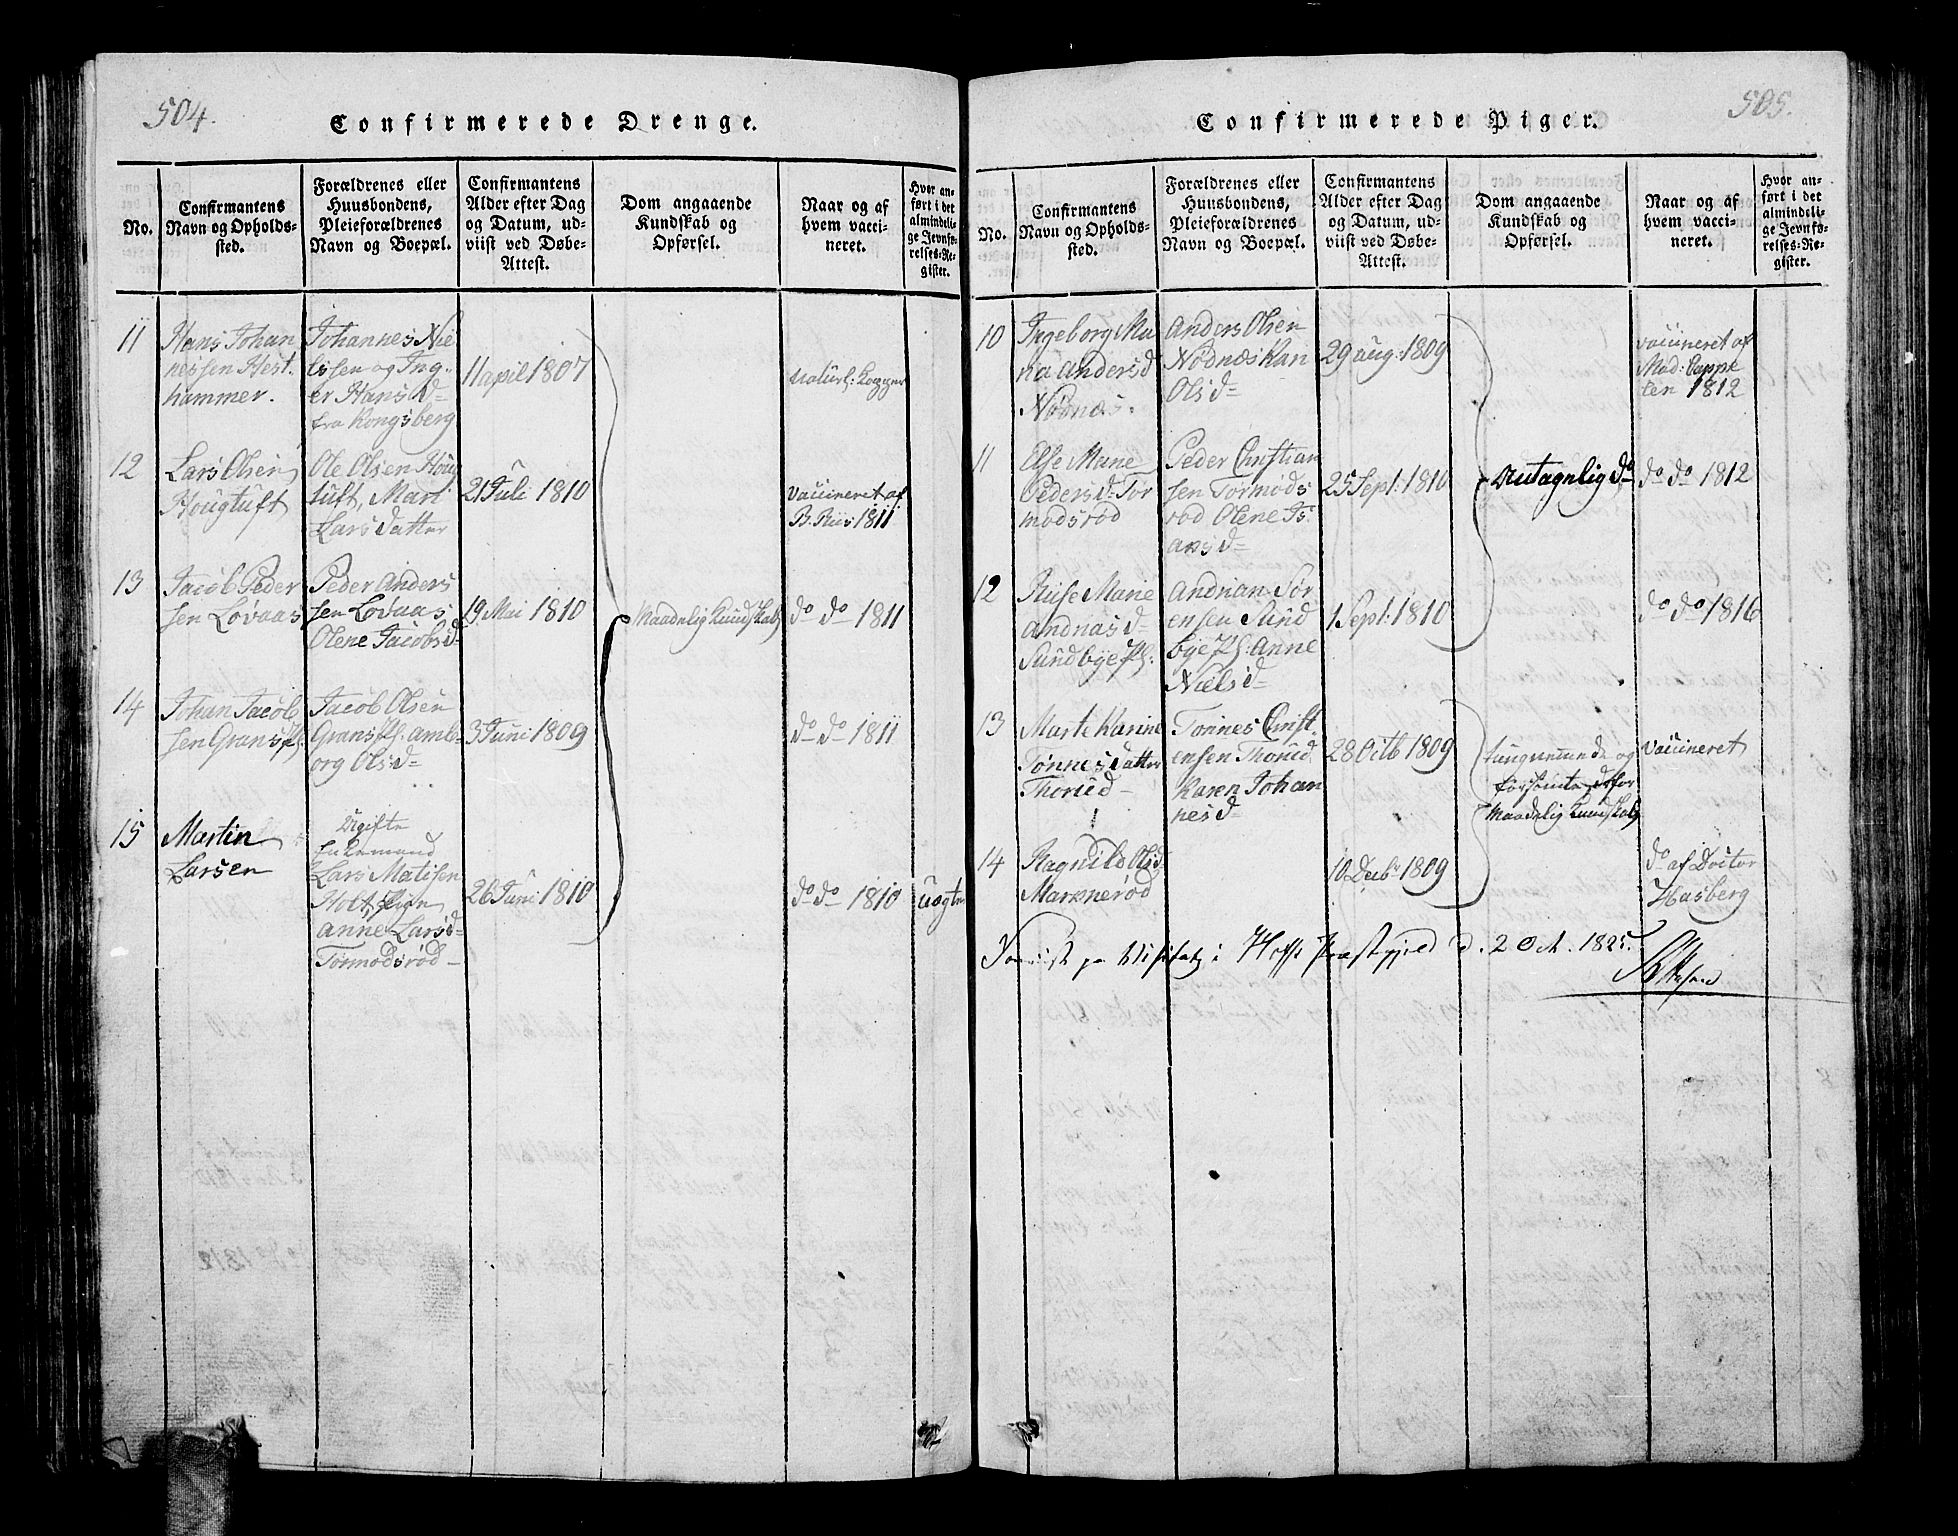 504.
Confirmerede Drenge.
No.
Confirmantens
Navn og Opholds-
sted.
Forældrenes eller
Huusbondens,
Pleieforældrenes
Navn og Boepæl.
Confirmantens
Alder efter Dag
og Datum, ud-
viist ved Døbe-
Attest.
Dom angaaende
Kundskab og
Opførsel.
Naar og af
hvem vacci-
neret.
Hvor an-
ført i det
almindeli-
ge Jevnfø-
relses-Re-
gister.
11
Hans Johan
nessen Hest
hammer.
Johannes Nie
lssen og Ing-
er Hansd
fra Kongsberg
11 april 1807
naturl: Kopper
12
Lars Olsen
Hougtuft
Ole Olsen Houg
tuft, Mari
Larsdatter
21 Juli 1810
vaccineret af
B. Riis 1811
13
Jacob Peder
sen Lovaas
Peder Anders
sen Lovaas
Olene Jacobsd
19 Mai 1810
Maadelig Kundskab
do do 1811
14
Johan Jacob
sen Grans Pl.
Jacob Olsen
Grans Pl: amb-
org Olsd
3 Juni 1809
do do 1811
15
Martin
Larsen
Ugifte
Enkemand
Lars Matisen
Holt, Pigen
Anne Larsd
Tormodsrød
26 Juni 1810
do do 1810
uægte
505.
Confirmerede Piger.
No.
Confirmantens
Navn og Opholds-
sted.
Forældrenes eller
Huusbondens,
Pleieforældrenes
Navn og Boepæl.
Confirmantens
Alder efter Dag
og Datum, ud-
viist ved Døbe-
Attest.
Dom angaaende
Kundskab og
Opførsel.
Naar og af
hvem vacci-
neret.
Hvor an-
ført i det
almindeli-
ge Jevnfø-
relses-Re-
gister.
10
Ingeborg Ma
ria Andersd
Nødnæs.
Anders Olsen
Nødnæs Kari
Olsd
29 aug: 1809
vaccineret af
Mad: Cappe
len 1812
11
Else Marie
Pedersd Tor
modsrød
Peder Christian
sen Tormods
rød Olene Is
aksd
25 Sept: 1810
Antagelig do
do do 1812
12
Marie
Andriasd
Sundbye Pl:
Andrian Sør
ensen Sund
bye Pl: Anne
Nielsd
1 Sept: 1810
do do 1816
13
Marte Karine
Tønnesdatter
Thorud
Tønnes Christ
ensen Thorud
Karen Johan
nesd
28 Octb 1809
tungnemmede og
forsømte derfor
Maadelig Kundskab
vaccineret
14
Ragnild Olsd
Marknerød
10 Decbr 1809
do af Doctor
Hasberg
paa Visitats i Hoffs Præstegjeld d. 2 Oct. 1825.